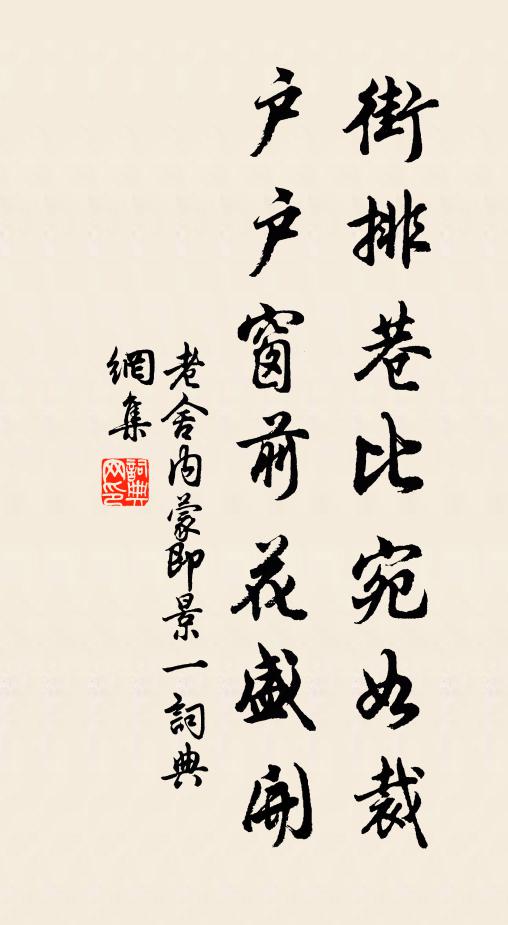 街排巷比宛如裁
户户窗前花盛開
老舍内蒙即景一詞典
網集
詞典
网印